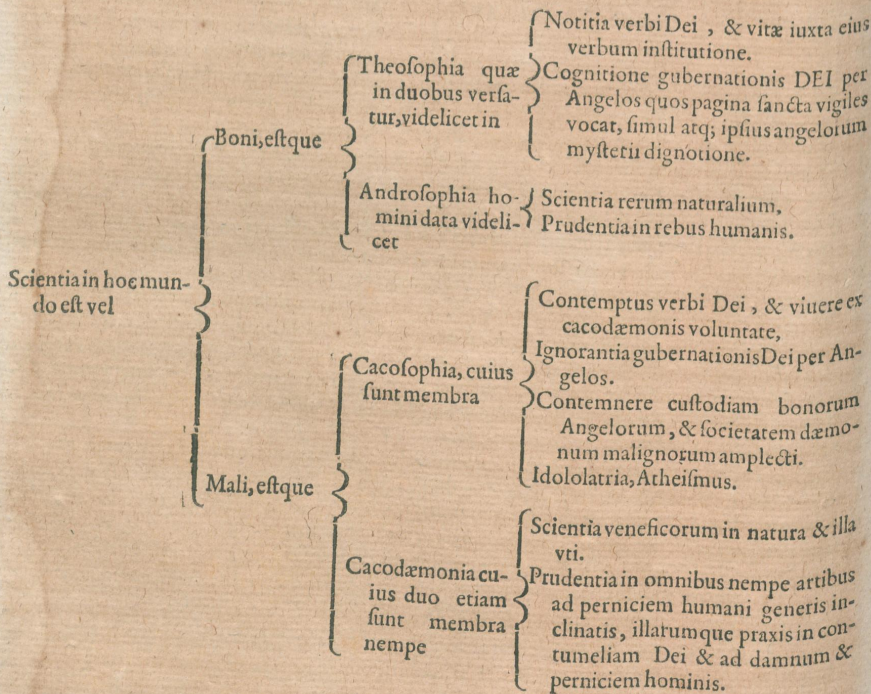 Scientia in hoc mun-
do est vel
Boni, estque
Theosophia quæ
in duobus versa-
tur, videlicet in
Notitia verbi Dei , & vitæ iuxta eius
verbum institutione.
Cognitione gubernationis DEI per
Angelos quos pagina sancta vigiles
vocat, simul atq; ipsius angelorum
mysterii dignotione.
Androsophia ho-
mini data videli-
cet
Scientia rerum naturalium,
Prudentia in rebus humanis.
Mali, estque
Cacosophia, cuius
sunt membra
Contemptus verbi Dei , & viuere ex
cacodæmonis voluntate,
Ignorantia gubernationis Dei per An-
gelos.
Contemnere custodiam bonorum
Angelorum, & societatem dæmo-
num malignorum amplecti.
Idololatria, Atheismus.
Cacodæmonia cu-
ius duo etiam
sunt membra
nempe
Scientia veneficorum in natura & illa
vti.
Prudentia in omnibus nempe artibus
ad perniciem humani generis in-
clinatis, illarumque praxis in con-
tumeliam Dei & ad damnum &
perniciem hominis.